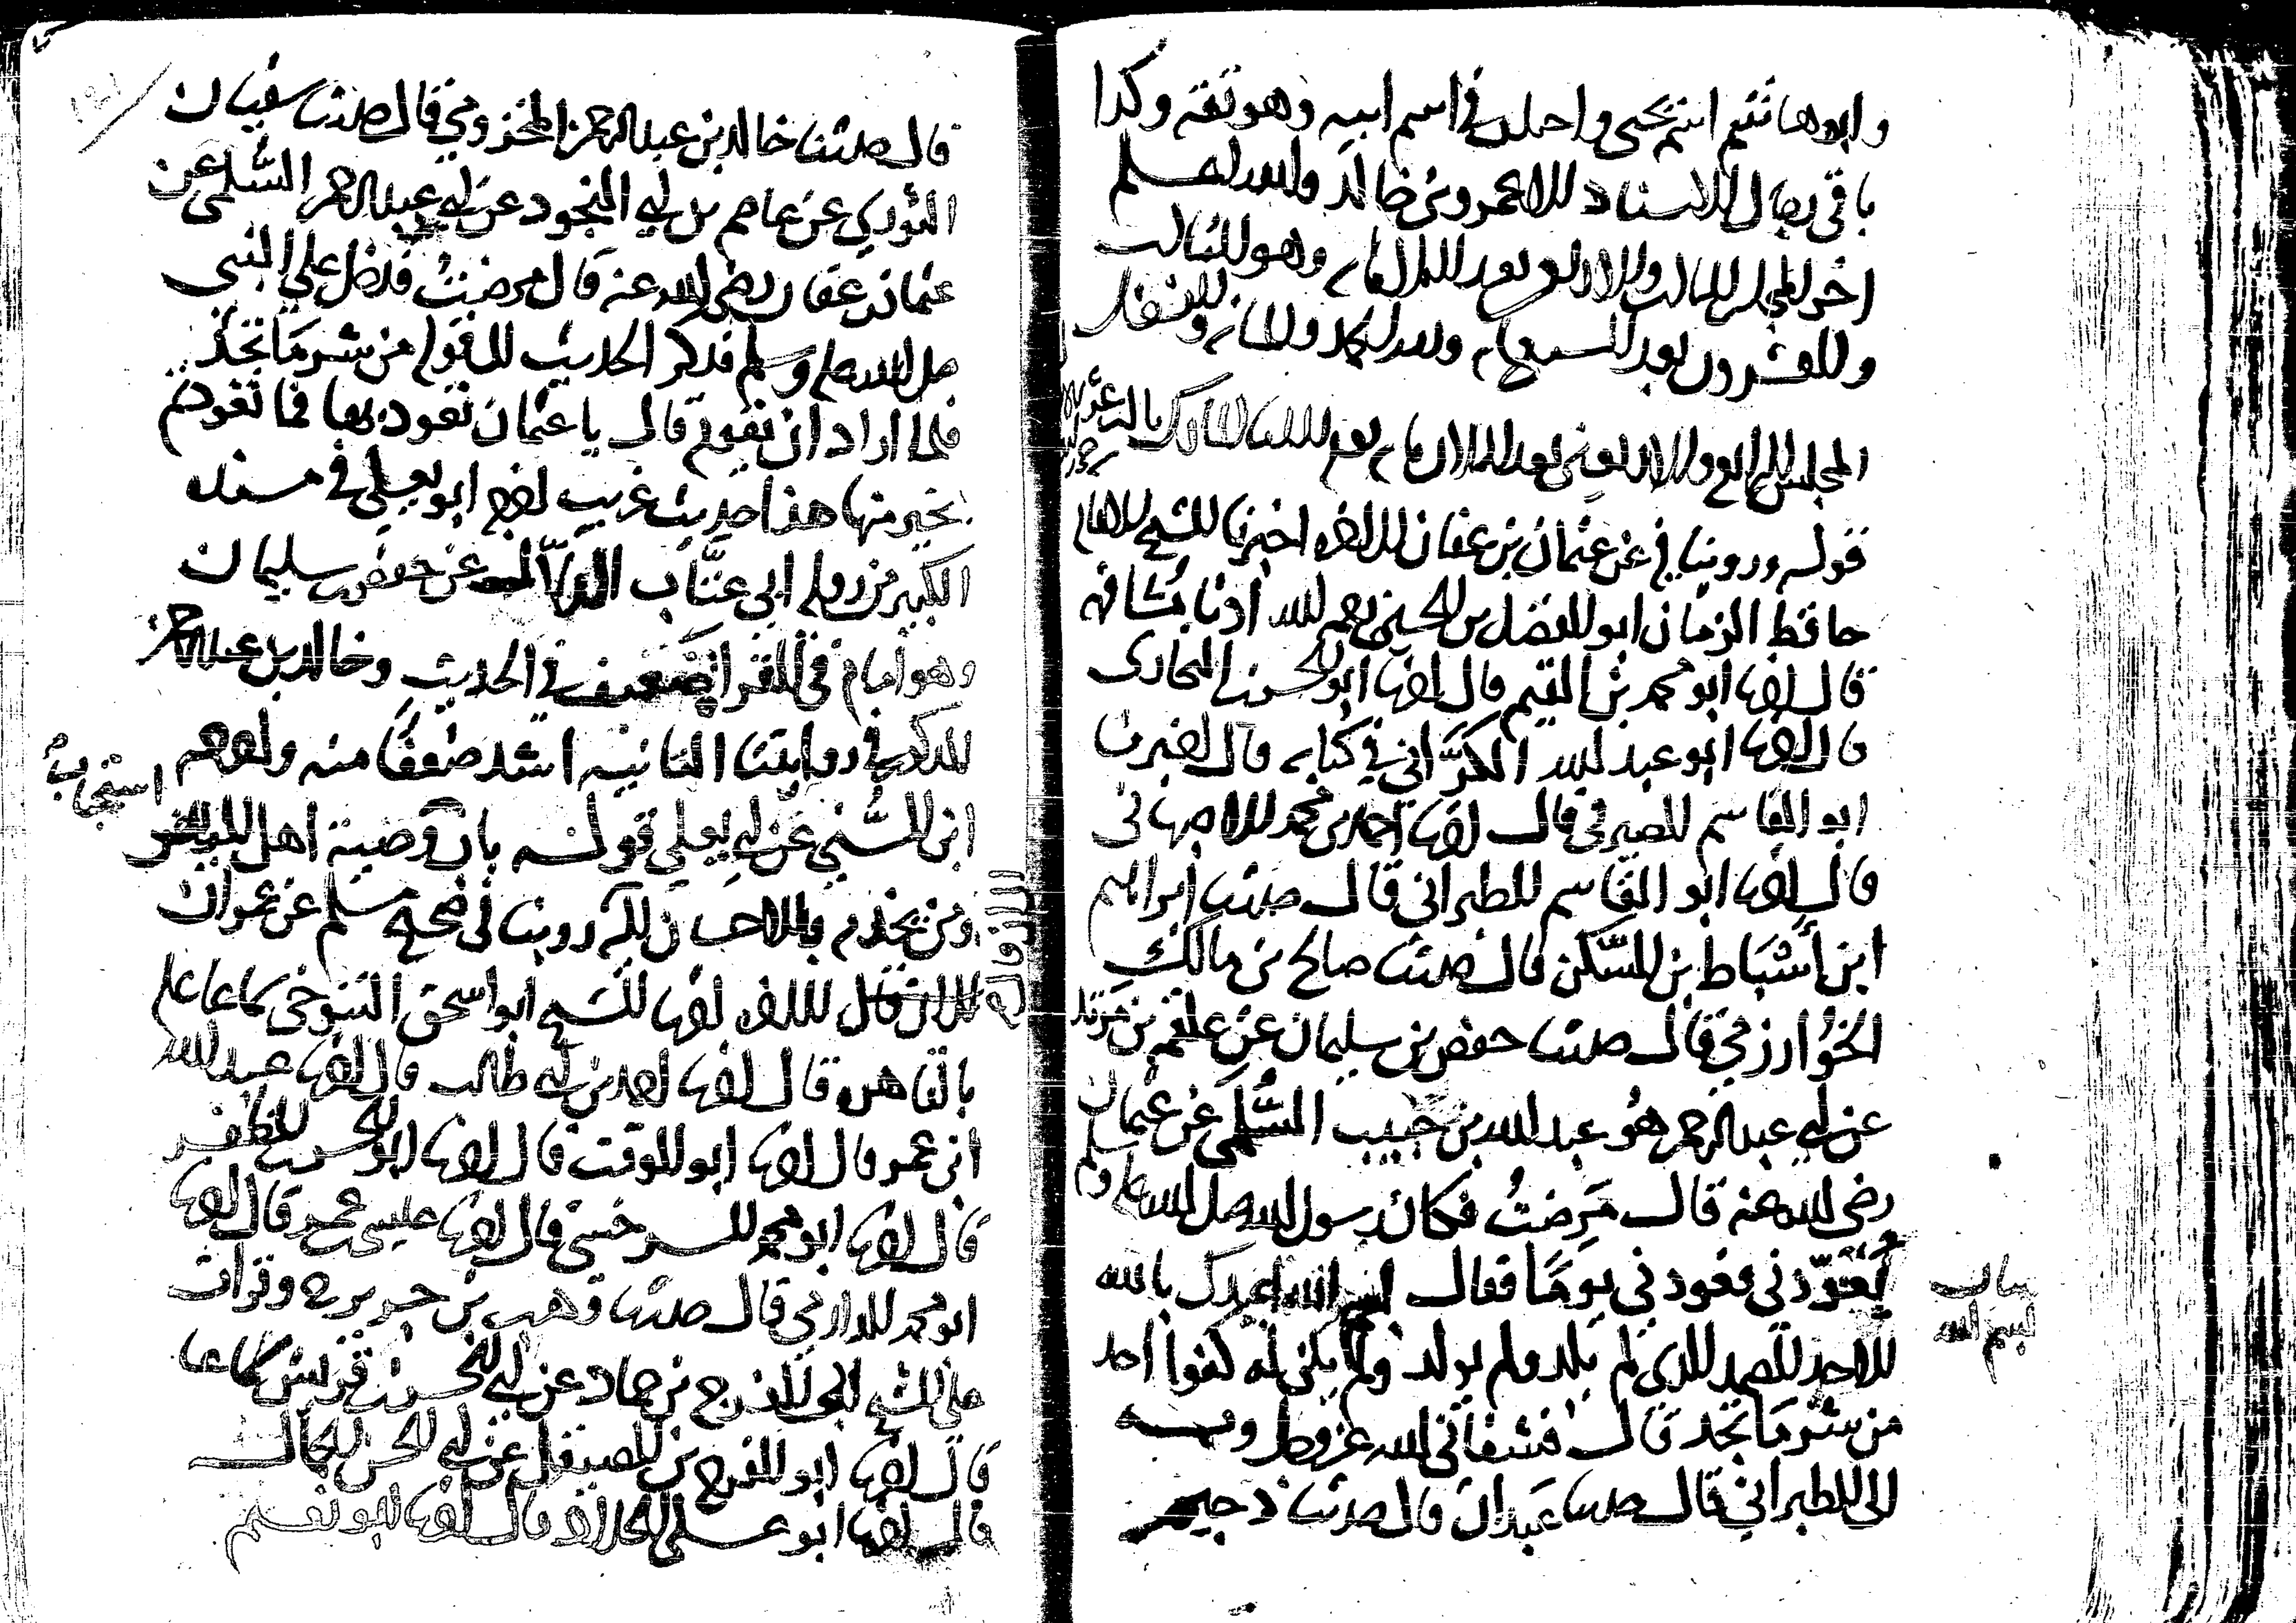 وابو هاشم اسمه يحيى واختلف في اسم ابيه وهو ثقة وكذا
باقي رجال الاسناد الا عمرو بن خالد والله اعلم
اخر المجلس الثالث والاربعون بعد الثلثمائه وهو الثالث
والعشرون بعد السبعمائه
المجلس الرابع والاربعون بعد الثلاثمائه
قوله وروينا فيه عن عثمان بن عفان الى اخره اخبرنا الشيخ الامام
حافظ الزمان ابو الفضل بن الحسين رحمه الله اذنا مشافهة
قال اخبرنا ابو محمد بن القيم قال اخبرنا ابو الحسن بن البخاري
قال اخبرنا ابو عبد الله الكرَّاني في كتابه قال اخبرنا
ابو القاسم الصيرفي قال اخبرنا احمد بن محمد الاصبهاني
قال اخبرنا ابو القاسم الطبراني قال حدثنا ابراهيم
ابن أسْبَاط بن السَّكَن قال حدثنا صالح بن مالك
الخُوارزمي قال حدثنا حفص بن سليمان عن علقمه بن مرثد
عن ابي عبد الرحمن هو عبد الله بن حبيب السُّلمي عن عثمان
رضي الله عنه قال مَرِضتُ فكان رسول الله صلى الله عليه وسلم
يُعَوّذني فعوذني يومًا فقال بسم الله اعيذك بالله
الاحد الصمد الذي لم يلد ولم يولد ولم يكن له كفوا احد
من شر ما تجد قال فشفاني الله عز وجل وبه
الى الطبراني قال حدثنا عبدان قال حدثنا دحيم
بيان
بسم الله
قال حدثنا خالد بن عبد الرحمن المخزومي قال حدثنا سفيان
الثوري عن عاصم بن ابي النجود عن ابي عبد الرحمن السُّلمي عن
عثمان بن عفان رضي الله عنه قال مرضتُ فدخل علي النبي
صلى الله عليه وسلم فذكر الحديث الى قوله من شر ما تجد
فلما اراد ان يقوم قال يا عثمان تعوذ بها فما تعوذتم
بخير منها هذا حديث غريب اخرجه ابو يعلى في مسنده
الكبير من روايه ابي عتَّاب الدلاّل عن حفص بن سليمان
وهو امام في القراه ضعيف في الحديث وخالد بن عبد الرحمن
المذكور في روايتنا الثانية اشد ضعفًا منه واخرجه
ابن السُّني عن ابي يعلى قوله باب استحباب وصية اهل المريض
ومن يخدمه بالاحسان اليه روينا في صحيح مسلم عن عمران
الى اخره اخبرنا الشيخ ابو اسحق التنوخي سماعا عليه
بالقاهره قال اخبرنا احمد بن ابي طالب قال اخبرنا عبد الله
ابن عمر قال اخبرنا ابو الوقت قال اخبرنا ابو الحسن بن المظفر
قال اخبرنا ابو محمد السرخسي قال اخبرنا عيسى بن عمر قال اخبرنا
ابو محمد الدارمي قال حدثنا وهب بن جرير ح وقرات
على الشيخ ابي الفرج بن حماد عن ابي الحسن بن قريش سماعا
قال اخبرنا ابو الفرج بن الصيقل عن ابي الحسن الجمال
قال اخبرنا ابو علي الحداد قال اخبرنا ابو نعيم